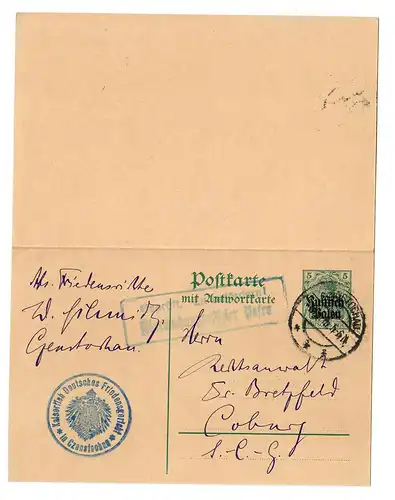 Postkarte
mit Antwortkarte
5 5
Russisch-
Polen
Abs. Friedensrichter
Czenstochau
Herrn
Rechtsanwalt
Dr. Bretzfeld
Coburg
S.-C.-G.
Kaiserlich Deutsches Friedensgericht
in Czenstochau